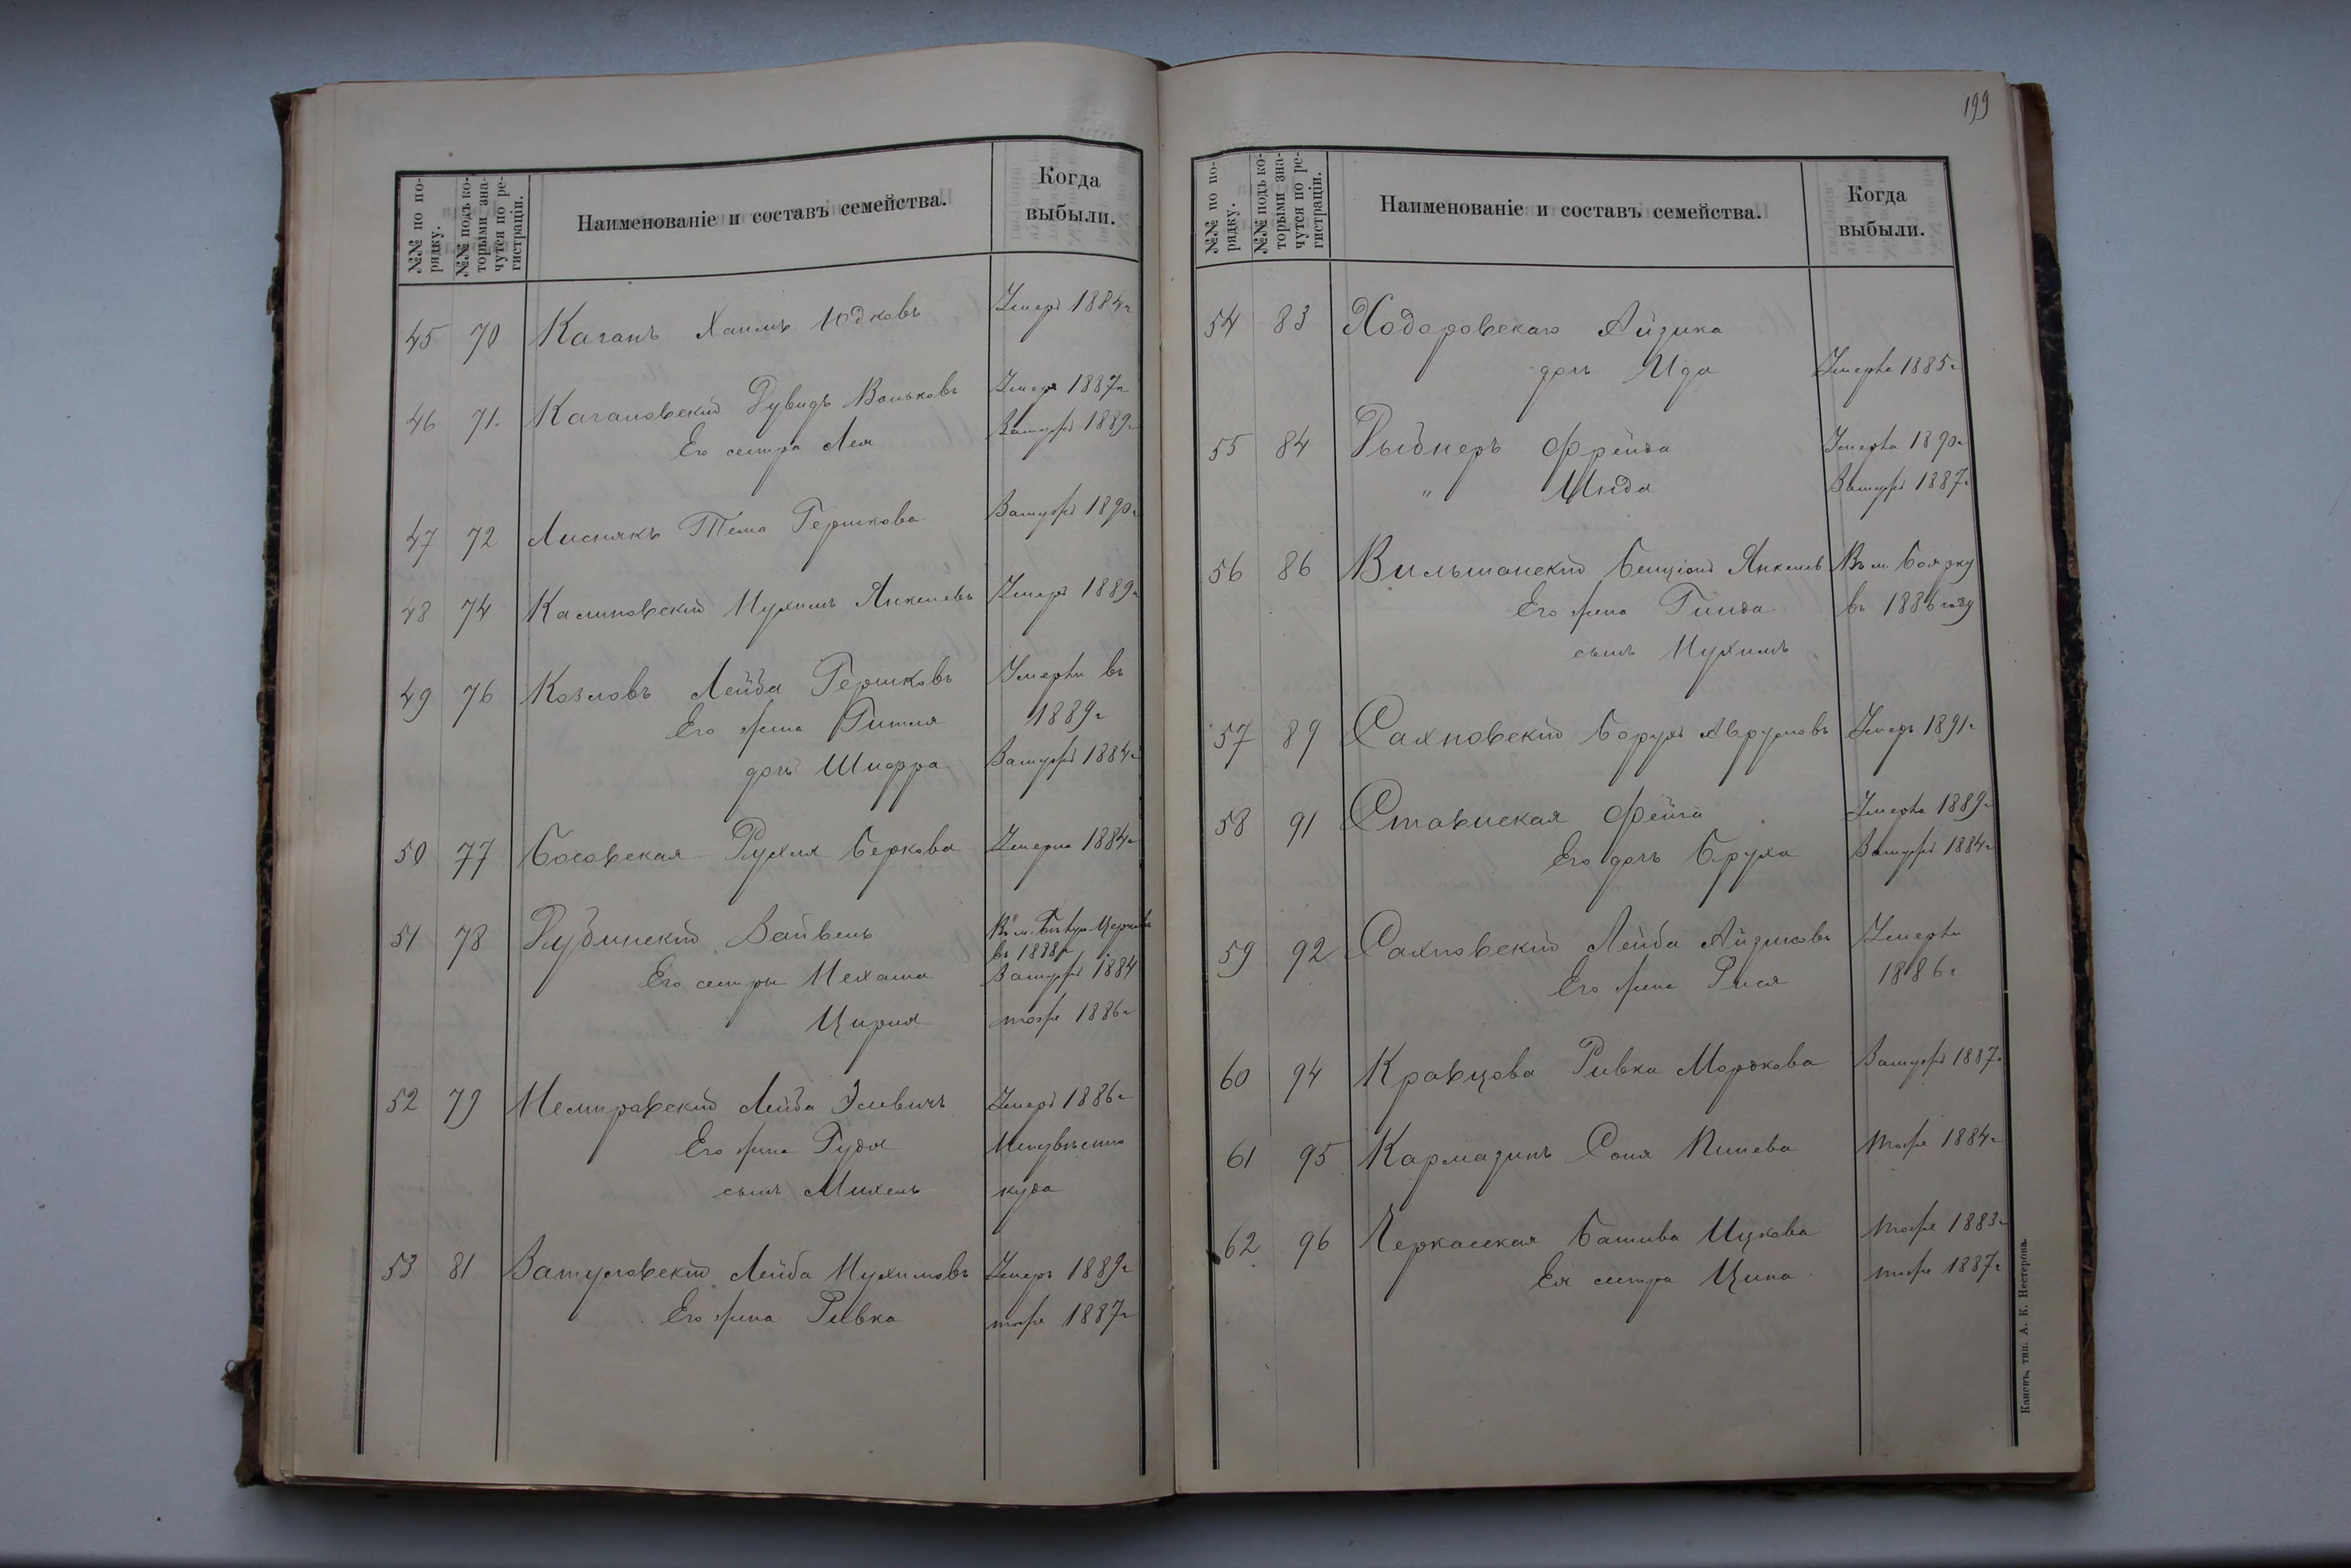 199
№№ по по-
рядку.
№№ подъ ко-
торыми зна-
чутся по ре-
гистраціи.
Наименованіе и составъ семейства.
Когда
выбыли.
45 70 Каганъ Хаимъ Юдковъ Умеръ 1884 г
46 71. Кагановскій Дувидъ Вольковъ Умеръ 1887 г
Его сестра Лея Замужъ 1889 г
47 72 Лиснякъ Тема Гершкова Замужъ 1890 г
48 74 Калиновскій Нухимъ Янкелевъ Умеръ 1889 г
49 76 Козловъ Лейба Гершковъ Умерли въ
Его жена Гитля 1889 г
дочь Шифра Замужъ 1884 г
50 77 Босовская Рухля Беркова Умерла 1884 г
51 78 Рубинскій Вайвель Въ м. Бѣлую-Церковь
въ 1888 г
Его сестры Нехама Замужъ 1884
Цирля тоже 1886 г
52 79 Немировскій Лейба Элевичъ Умеръ 1886 г
Его жена Гудя Неизвѣстно
сынъ Михель куда
53 81 Ватуловскій Лейба Нухимовъ Умеръ 1889 г
Его жена Ривка тоже 1887 г
№№ по по-
рядку.
№№ подъ ко-
торыми зна-
чутся по ре-
гистраціи.
Наименованіе и составъ семейства.
Когда
выбыли.
54 83 Ходоровскаго Айзика
дочь Ида Умерла 1885 г
55 84 Рыбнеръ Фрейда Умерла 1890 г
" Инда Замужъ 1887 г
56 86 Вильшанскій Бенціонъ Янкелев Въ м. Боярку
Его жена Гинда въ 1886 году
сынъ Нухимъ
57 89 Сахновскій Борухъ Аврумовъ Умеръ 1891 г
58 91 Ставиская Фейга Умерла 1889 г
Его дочь Бруха Замужъ 1884 г
59 92 Сахновскій Лейба Айзиковъ Умерли
Его жена Рися 1886 г
60 94 Кравцова Ривка Мордкова Замужъ 1887 г
61 95 Кармазинъ Соня Пинева Тоже 1884 г
62 96 Черкасская Башива Ицкова Тоже 1883 г
Ея сестра Ципа тоже 1887 г
Каневъ, тип. А. К. Нестерова.